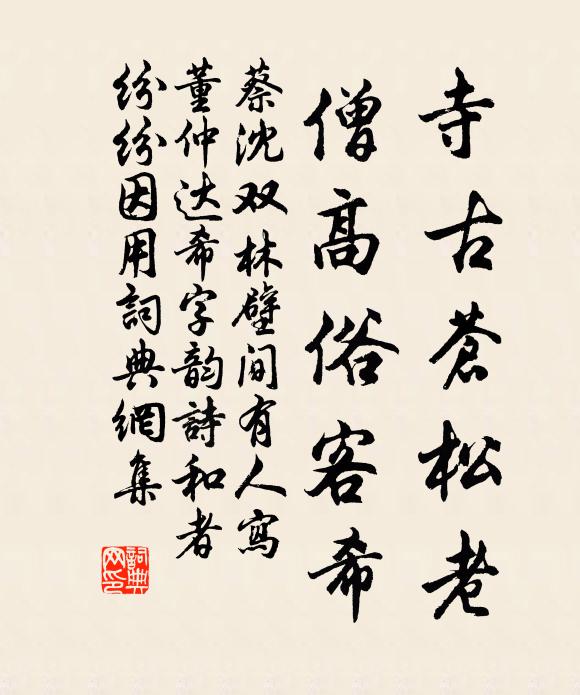 寺古蒼松老
僧高俗客希
蔡沈双林壁间有人寫
董仲达希字韵詩和者
纷纷因用詞典網集
詞典网印